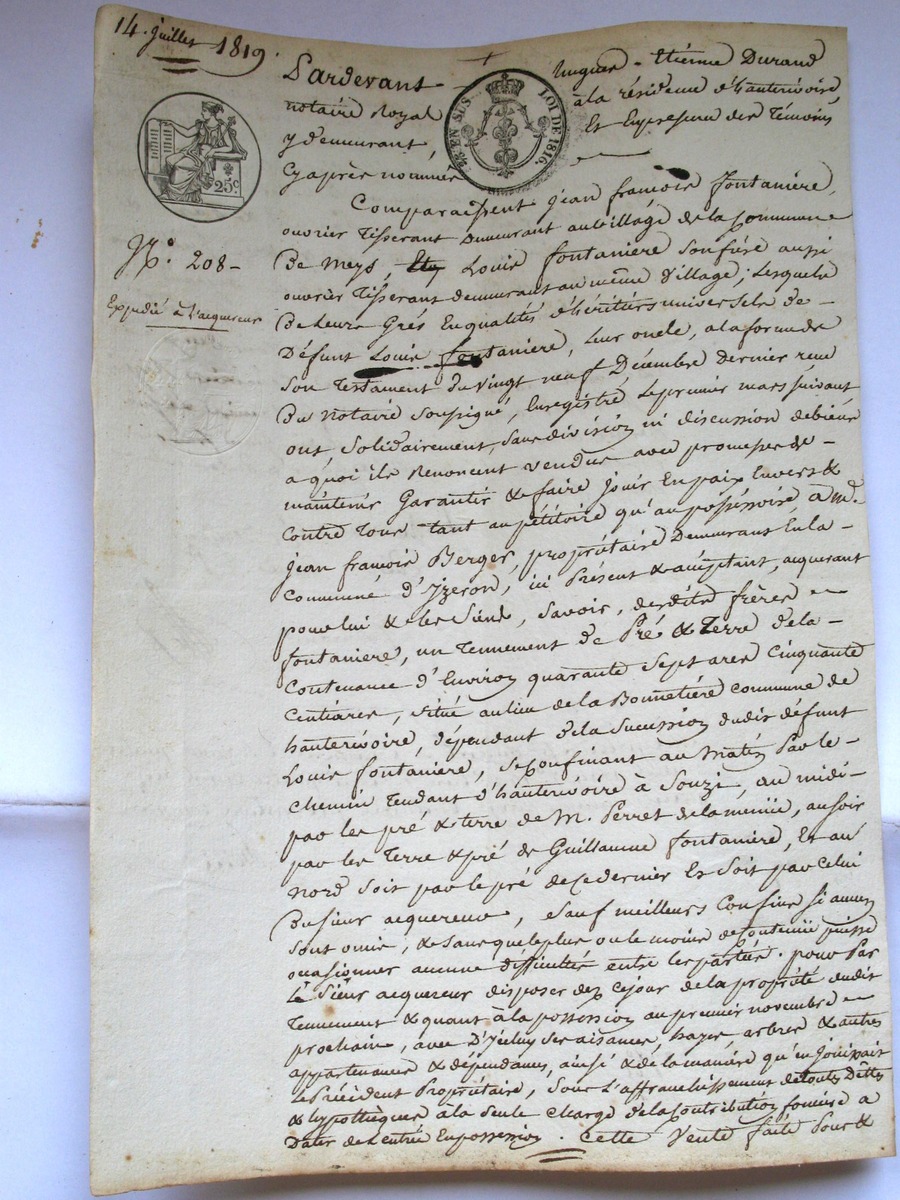 14. juillet 1819
25c
2e EN SUS
LOI DE 1816.
No. 208 -
Expédié à l'acquereur
Pardevant hugues - Etienne Durand
notaire Royal à la résidence d'hauterivoire
y demeurant Et En présence des Témoins
Cy après nommés
Comparaissent jean françois fontanière,
ouvrier Tisserant demeurant au village de la Commune
De meys, Louis fontanière son frère aussi
ouvrier Tisserant demeurant au même village; Lesquels
De Leurs Grés En qualités d'héritiers universels de
Défunt Louis fontanière, Leur oncle, à la forme de
Son Testament du vingt neuf Décembre dernier reçu
Du notaire soussigné, Enregistré le premier mars suivant
ont solidairement, sans division ni discussion de biens
a quoi ils Renoncent vendus avec promesse de
maintenir Garantir & faire jouir En paix Envers &
contre Tous tant au pétitoire qu'au possessoire à m.
jean françois Berger, propriétaire Demeurant En la
commune d'Yzeron, ici Présent & acceptant, acquerant
pour lui & les siens, Savoir, desdits frères
fontaniere, un Tennement de Pré & Terre de la
Contenance d'Environ quarante Sept ares Cinquante
Centiares, situé au lieu de la Bonnetière commune de
hauterivoire, dépendant de la Succession dudit défunt
Louis fontanière, se Confinant au matin Par le
chemin Tendant d'hauterivoire à Souzi, au midi
par les pré & terre de M. Perret de la menüe, au soir
par les Terre & pré de Guillaume fontanière, Et au
nord soit par le pré de Ce dernier Et Soit par Celui
Du sieur acquereur, Sauf meilleurs Confins si aucuns
sont omis, & sans que le plus ou le moins de Contenue puisse
ocasionner aucune difficultés entre les parties. pour Par
le Sieur acquereur disposer dez Ce jour de la propriété dudit
Tennement & quant à la possession au premier novembre
prochain, avec D'Yceluy ses aisances, hayes, arbres & autres
appartenances & dépendances, ainsi & de la manière qu'en jouissait
le Précédent Propriétaire, Sous L'affranchissement de toutes Dettes
& hypothèques à la seule charge de la Contribution foncière à
Dater de l'entrée En possession. Cette Vente faite Pour &